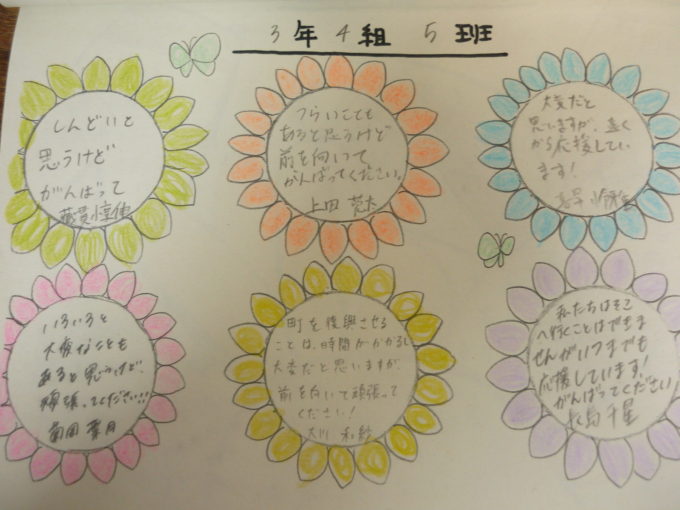 3年4組 5班
しんどいと
思うけど
がんばって
つらいことも
あると思うけど
前を向いて
がんばってください。
上田
大変だと
思いますが、遠く
から応援してい
ます！
いろいろと
大変なことも
あると思うけど、
頑張ってください!!!
葉月
町を復興させる
ことは、時間がかかるし
大変だと思いますが、
前を向いて頑張って
ください！
大川 和紗
私たちはそこ
へ行くことはできま
せんがいつまでも
応援しています！
がんばってください
長島千星